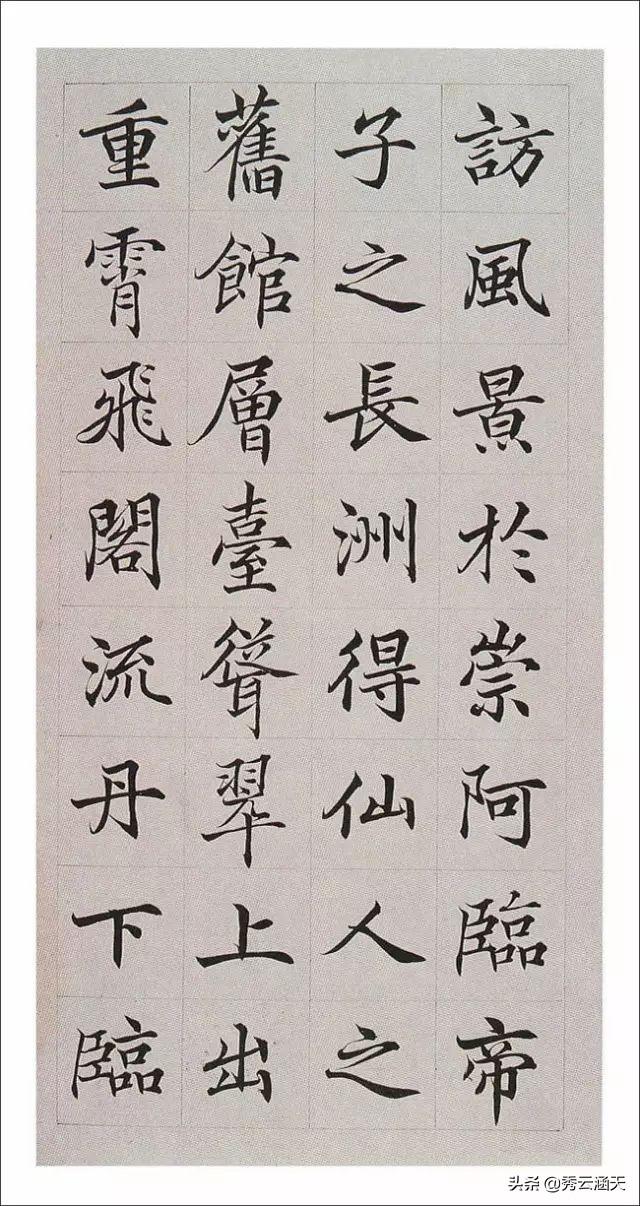 訪風景於崇阿臨帝
子之長洲得仙人之
舊館層臺聳翠上出
重霄飛閣流丹下臨
头条 @秀云涵天